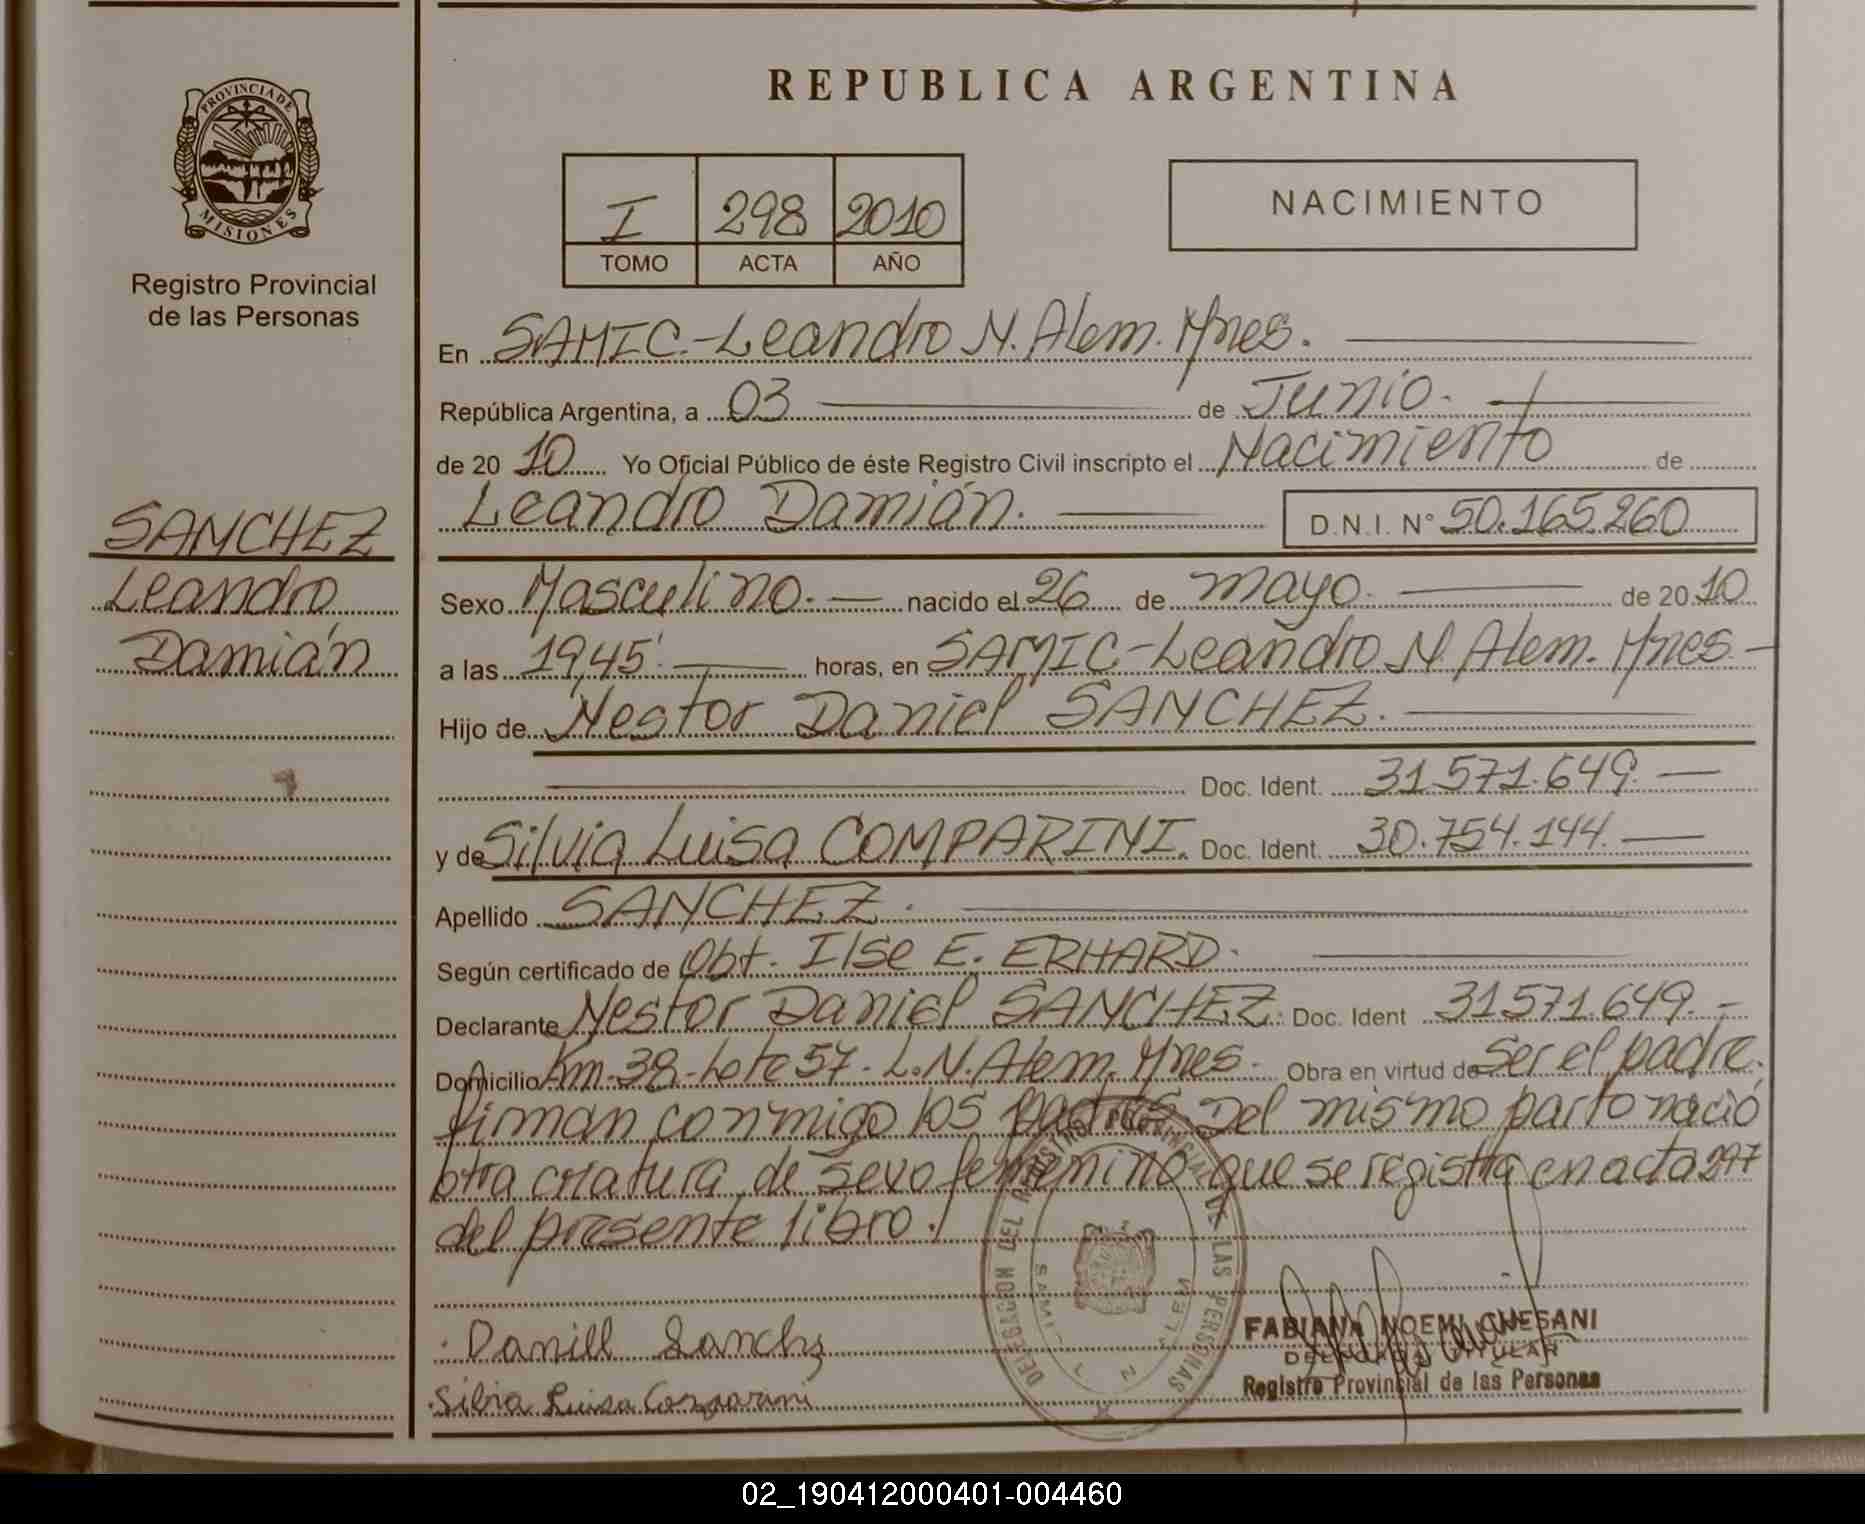 REPUBLICA ARGENTINA
PROVINCIA DE
MISIONES
Registro Provincial
de las Personas
I 298 2010
TOMO ACTA AÑO
NACIMIENTO
En SAMIC.-Leandro N. Alem. Mnes.
República Argentina, a 03 de Junio.
de 20 10 Yo Oficial Público de éste Registro Civil inscripto el Nacimiento de
Leandro Damián. D.N.I. N° 50.165.260
SANCHEZ
Leandro
Damián
Sexo Masculino. nacido el 26 de mayo. de 20 10
a las 19,45 horas, en SAMIC-Leandro N. Alem. Mnes.-
Hijo de Nestor Daniel SANCHEZ.
Doc. Ident. 31.571.649.
y de Silvia Luisa COMPARINI. Doc. Ident. 30.754.144.
Apellido SANCHEZ.
Según certificado de Obt. Ilse E. ERHARD.
Declarante Nestor Daniel SANCHEZ. Doc. Ident 31.571.649.-
Domicilio Km-38-Lote 57- L.N.Alem. Mnes- Obra en virtud de Ser el padre.
firman conmigo los padres Del mismo parto nació
otra criatura de sexo femenino que se registra en acta 297
del presente libro.
DELEGACION DEL REGISTRO PROVINCIAL DE LAS PERSONAS
SAMIC L N ALEM
Daniel Sanchz
Silvia Luisa Comparini
FABIANA NOEMI CHESANI
DELEGADA TITULAR
Registro Provincial de las Personas
02_190412000401-004460